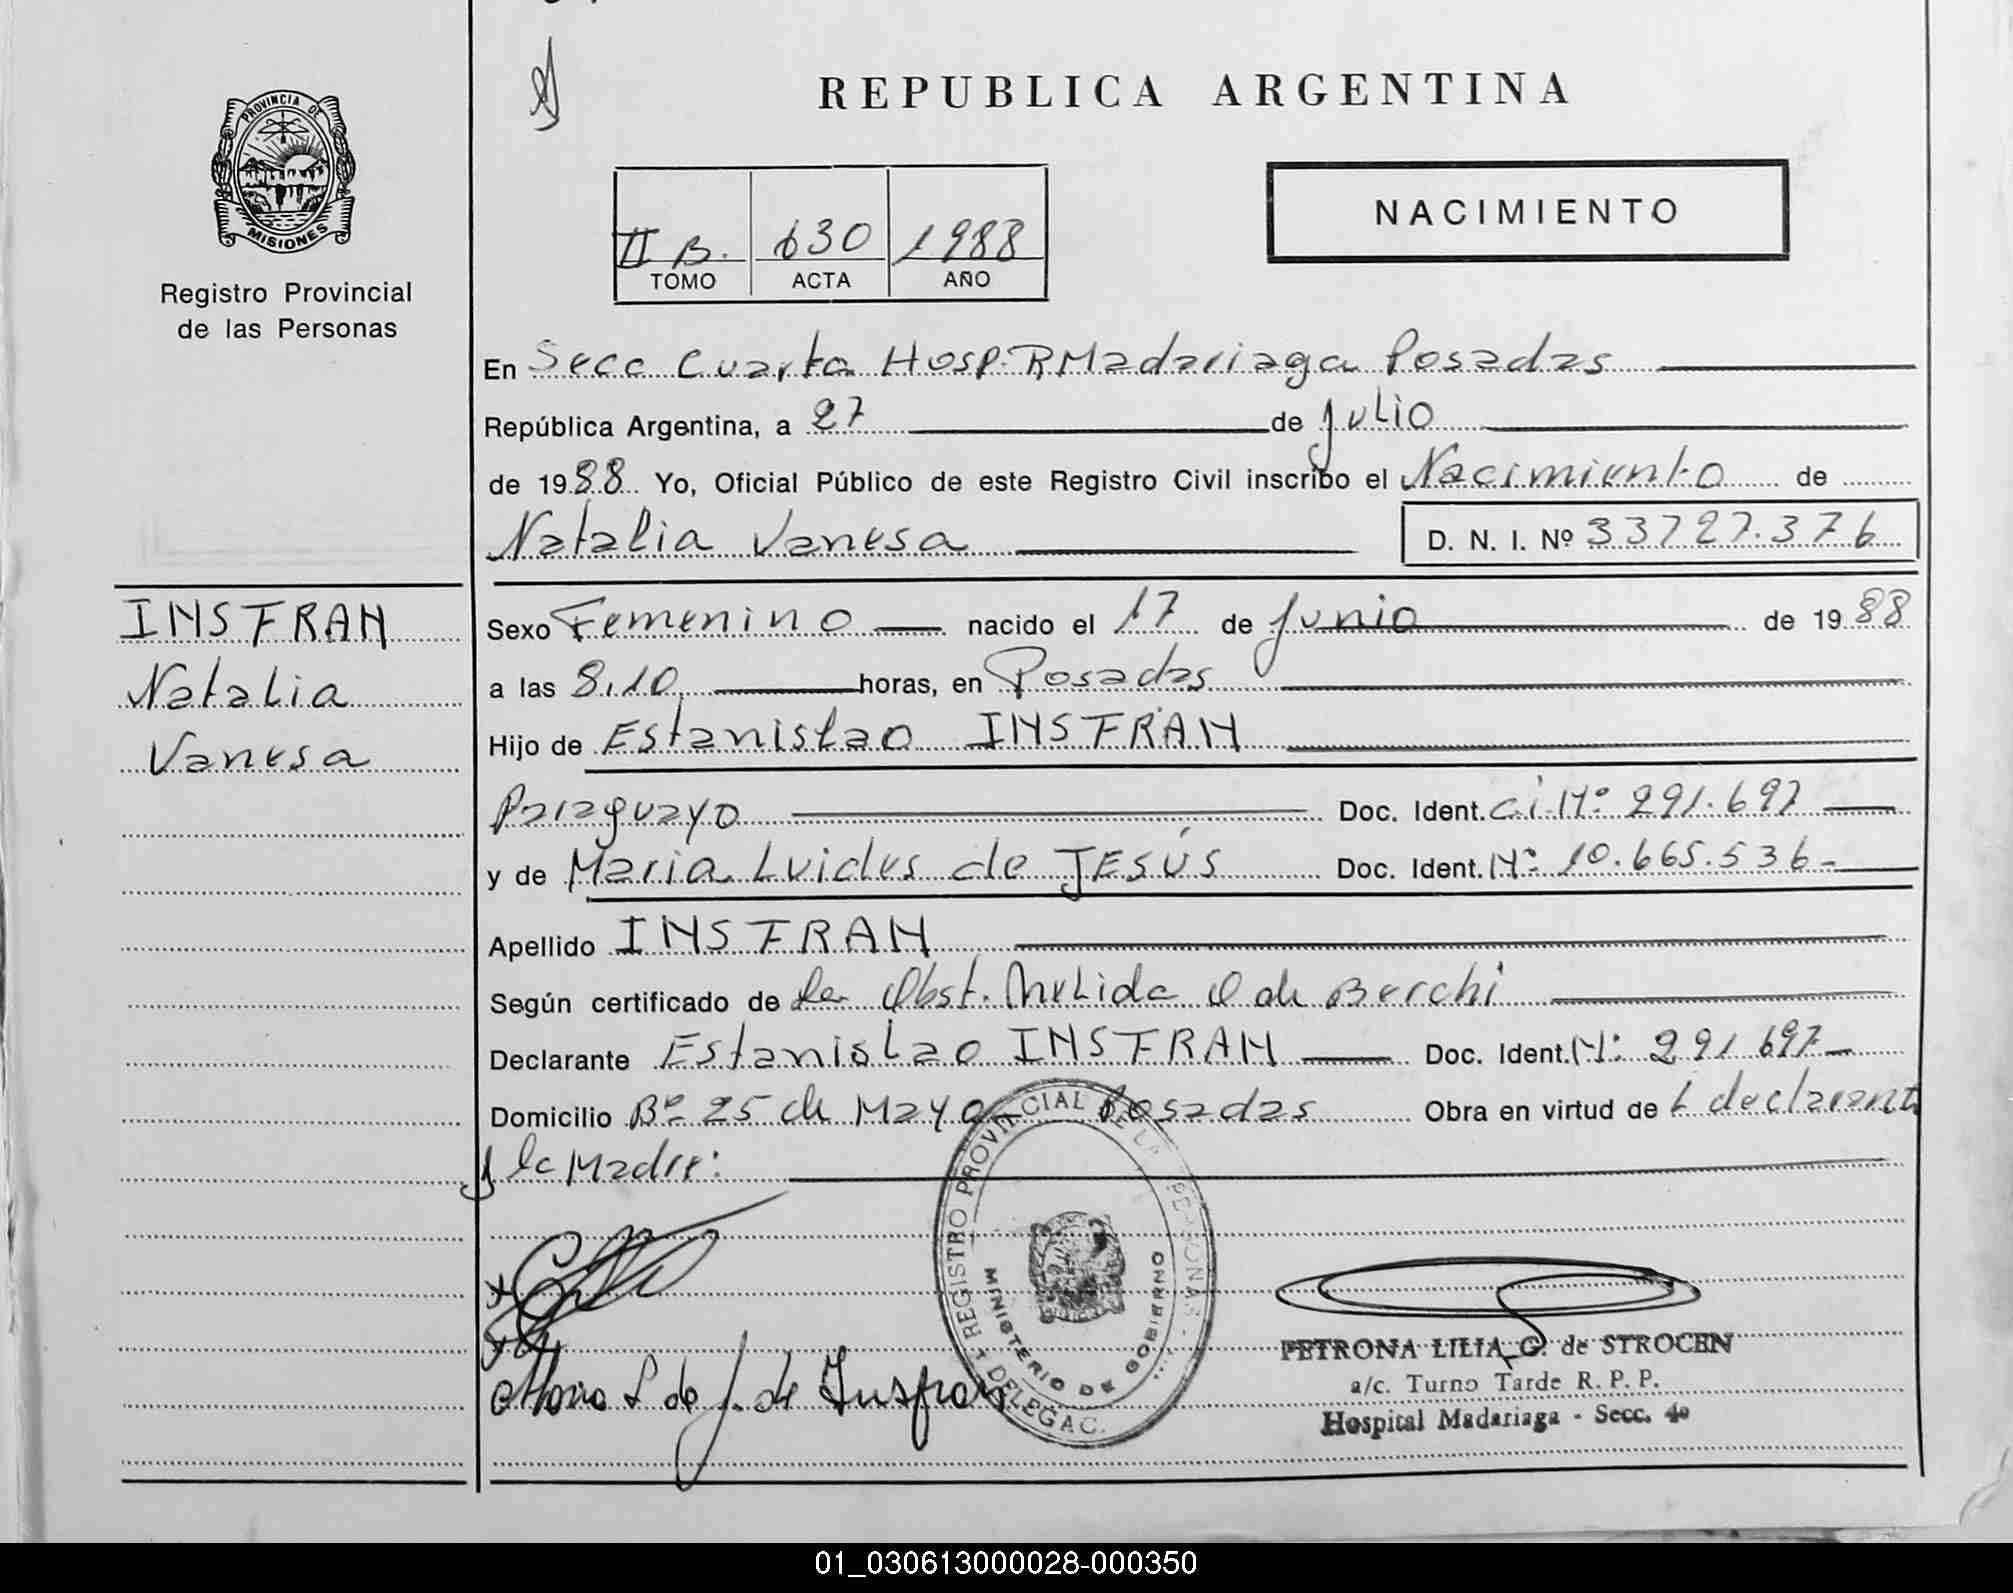 PROVINCIA DE
MISIONES
Registro Provincial
de las Personas
REPUBLICA ARGENTINA
II B. 630 1988
TOMO ACTA AÑO
NACIMIENTO
En Secc Cuarta Hosp. R Madariaga Posadas
República Argentina, a 27 de Julio
de 1988 Yo, Oficial Público de este Registro Civil inscribo el Nacimiento de
Natalia Vanesa D. N. I. Nº 33727.376
INSFRAN
Natalia
Vanesa
Sexo Femenino nacido el 17 de Junio de 1988
a las 8,10 horas, en Posadas
Hijo de Estanislao INSFRAN
Paraguayo Doc. Ident. Ci. Nº 291.697
y de Maria Luides de JESÚS Doc. Ident. Nº 10.665.536
Apellido INSFRAN
Según certificado de la Obst. Nelida O de Berchi
Declarante Estanislao INSFRAN Doc. Ident. Nº 291 697
Domicilio Bº 25 de Mayo Posadas Obra en virtud de l declarant
y la Madre:
REGISTRO PROVINCIAL DE LAS PERSONAS
MINISTERIO DE GOBIERNO
1 DELEGAC.
Maria L de J. de Insfran
PETRONA LILIA G. de STROCEN
a/c. Turno Tarde R. P. P.
Hospital Madariaga - Secc. 4a
01_030613000028-000350